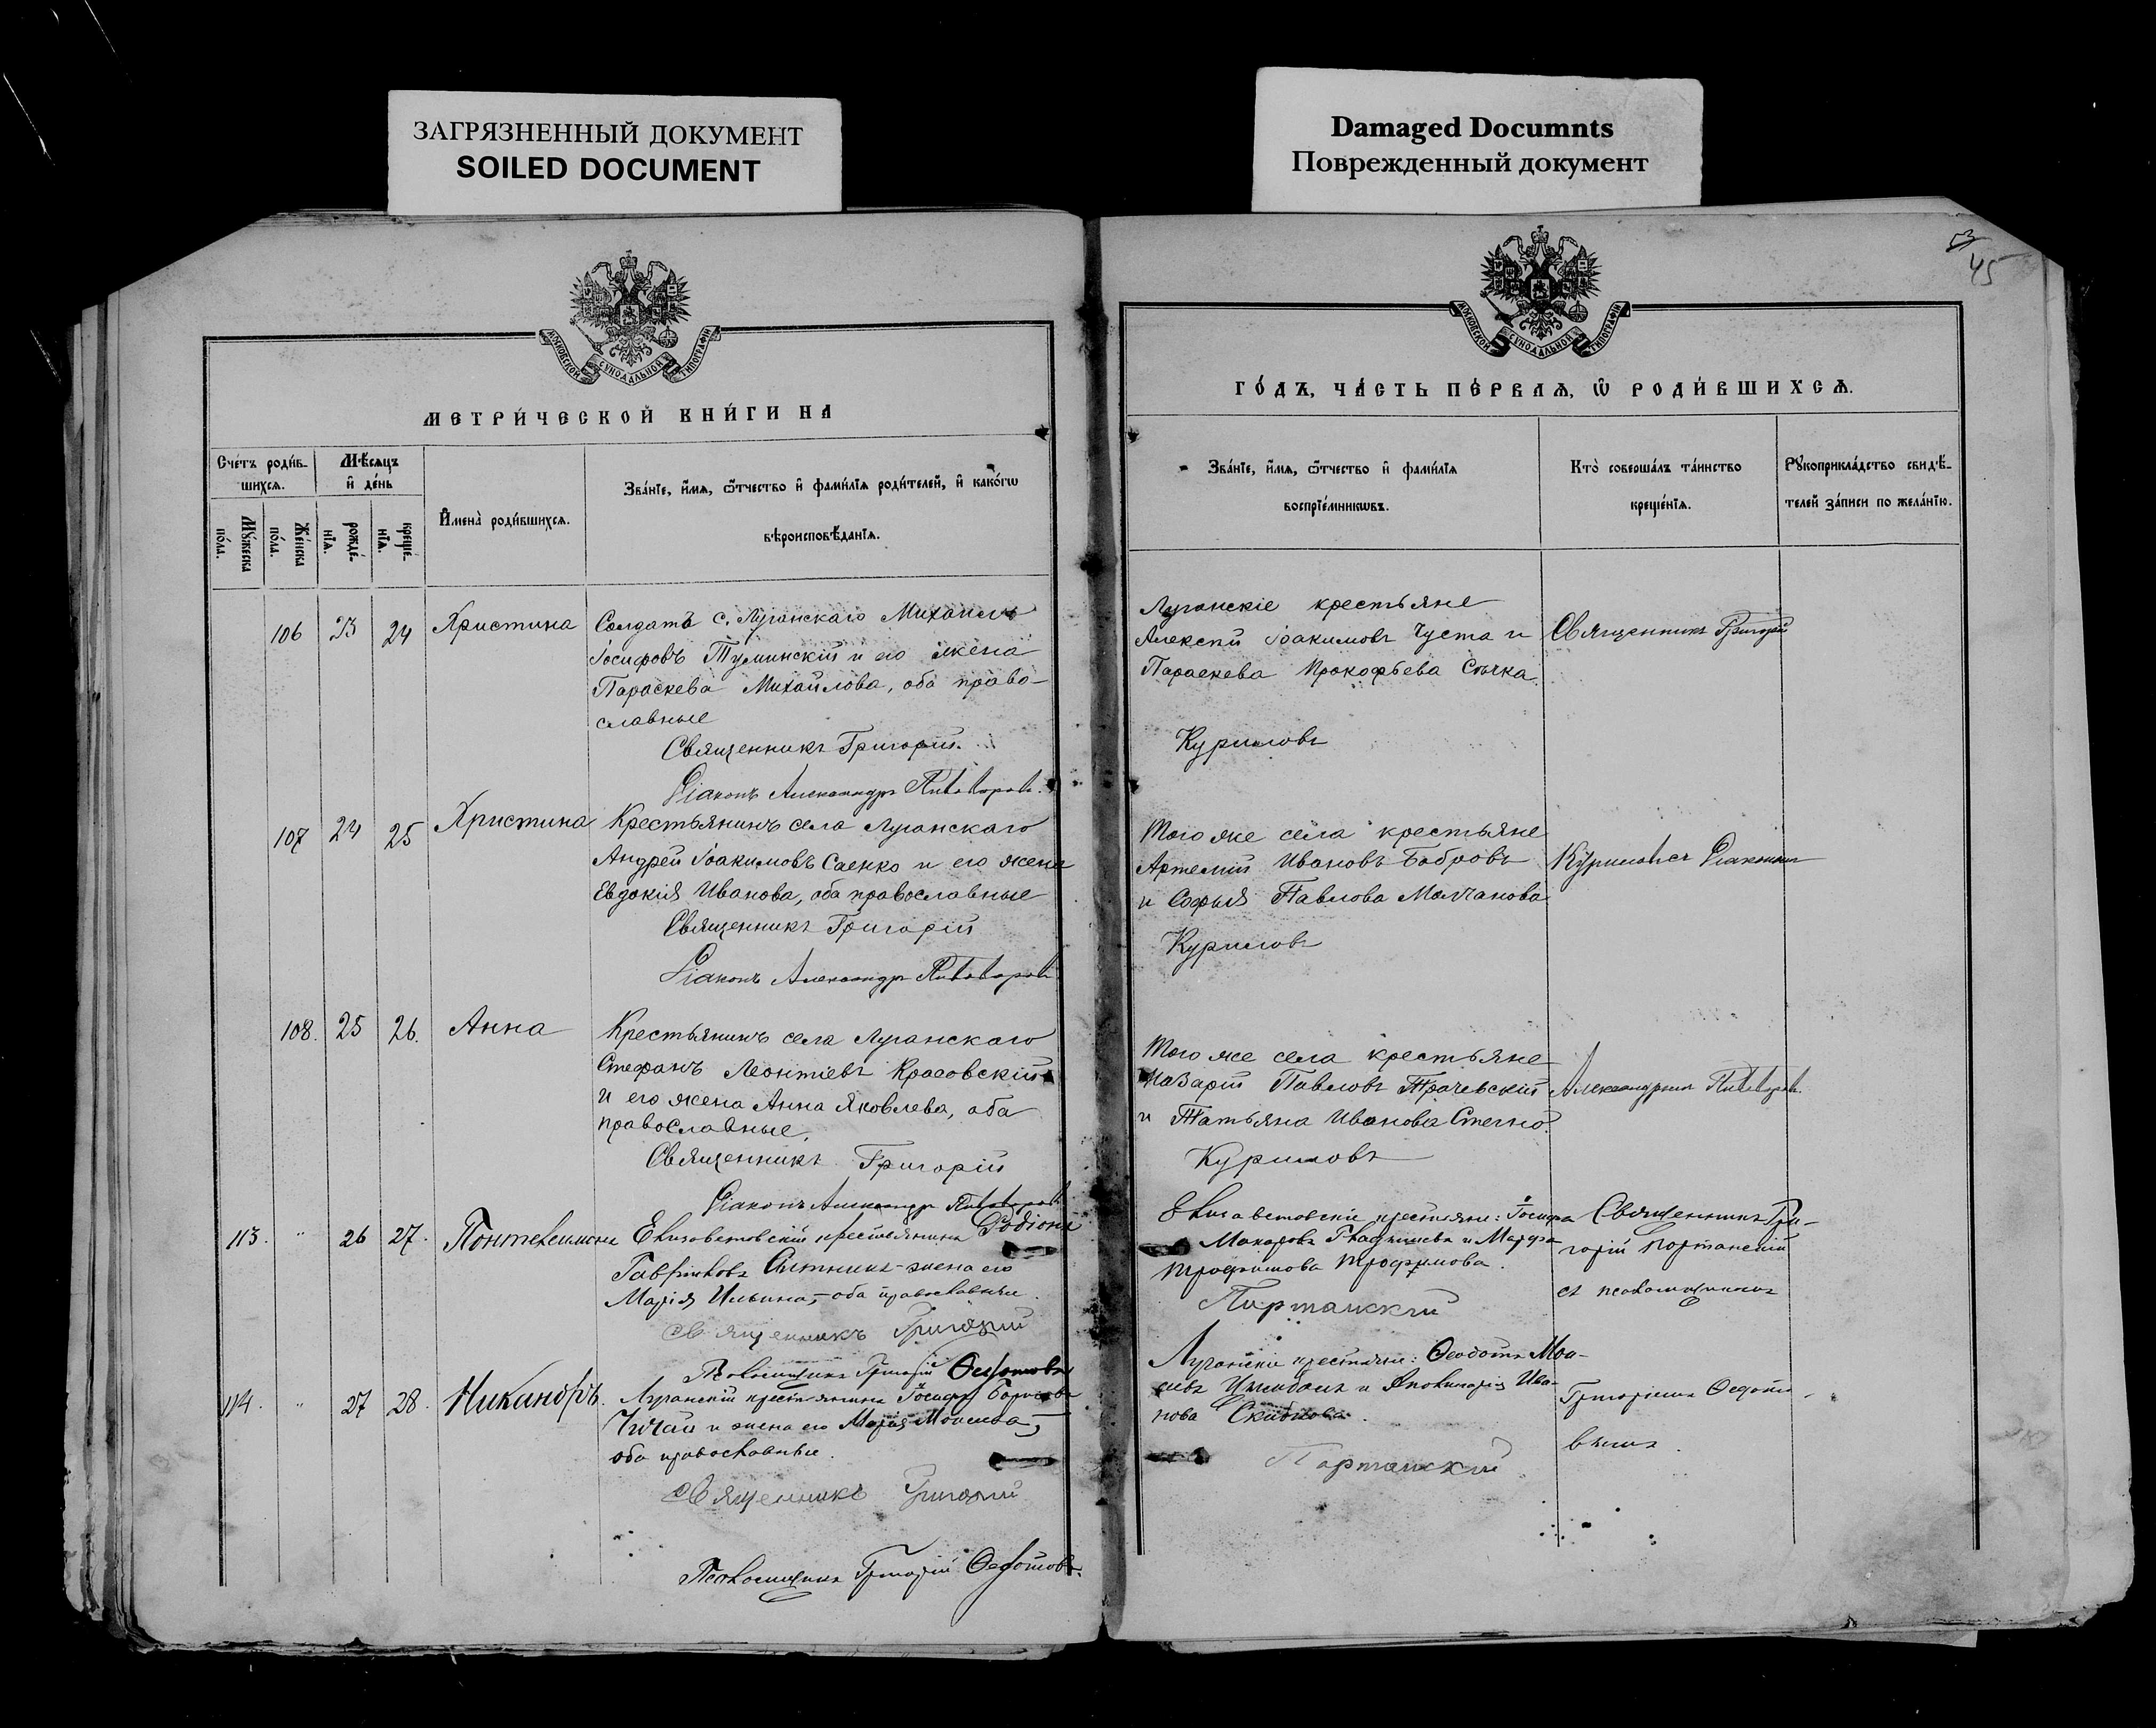 ЗАГРЯЗНЕННЫЙ ДОКУМЕНТ
SOILED DOCUMENT
Damaged Documnts
Поврежденный документ
45
МОСКОВСКОЙ СѴНОДАЛЬНОЙ ТИПОГРАФІИ
МЕТРИ́ЧЕСКОЙ КНИ́ГИ НА
Сче́тъ роди́в-
шихсѧ.
Мѣ́сѧцъ
и҆ де́нь
Мꙋ́жеска
по́ла.
Же́нска
по́ла.
рожде́-
нїѧ.
креще́-
нїѧ.
И҆мена̀ роди́вшихсѧ.
Зва́нїе, и҆́мѧ, ѻ҆́тчество и҆ фами́лїѧ роди́телей, и҆ како́гѡ
вѣроисповѣ́данїѧ.
106 23 24 Христина
Солдатъ с. Луганскаго Михаилъ
Іосифовъ Туминскій и его жена
Параскева Михайлова, оба право-
славные
Священникъ Григорій
Діаконъ Александръ Пивоваровъ.
107 24 25 Христина
Крестьянинъ села Луганскаго
Андрей Іоакимовъ Саенко и его жена
Евдокія Иванова, оба православные
Священникъ Григорій
Діаконъ Александръ Пивоваровъ
108. 25 26. Анна
Крестьянинъ села Луганскаго
Стефанъ Леонтіевъ Красовскій
и его жена Анна Яковлева, оба
православные.
Священникъ Григорій
Діаконъ Александръ Пивоваровъ
113. " 26 27. Пантелеимонъ
Елизаветовскій крестьянинъ Родіонъ
Гавриловъ Ситникъ - жена его
Марія Ильина, - оба православные.
Священникъ Григорій
Псаломщикъ Григорій Ѳедотовъ
114. " 27 28. Никандръ.
Луганскій крестьянинъ Іосифъ Борисовъ
и жена его Марія Моисеева,
оба православные.
Священникъ Григорій
Псаломщикъ Григорій Ѳедотовъ.
МОСКОВСКОЙ СѴНОДАЛЬНОЙ ТИПОГРАФІИ
ГО́ДЪ, ЧА́СТЬ ПЕ́РВАѦ, Ѡ҆ РОДИ́ВШИХСѦ.
Зва́нїе, и҆́мѧ, ѻ҆́тчество и҆ фами́лїѧ
воспрїе́мникѡвъ.
Кто̀ соверша́лъ та́инство
креще́нїѧ.
Рꙋкоприкла́дство свидѣ́-
телей за́писи по жела́нїю.
Луганскіе крестьяне
Алексѣй Іоакимовъ Чуста и
Параскева Прокофьева Сычка.
Куриловъ
Священникъ Григорій
Того же села крестьяне
Артемій Ивановъ Бобровъ
и Софья Павлова Молчанова
Куриловъ
Куриловъ съ Діакономъ
Того же села крестьяне
Назарій Павловъ Трачевскій
и Татьяна Иванова Стегно.
Куриловъ
Александромъ Пивоваров.
Елизаветовскіе крестьяне: Іосифъ
Макаровъ и Марфа
Трофимова Трофимова.
Портанскій
Священникъ Гри-
горій Портанскій
съ псаломщикомъ
Луганскіе крестьяне: Ѳеодотъ Мои-
сеевъ и Аполинарія Ива-
нова Скибнова.
Портанскій
Григоріемъ Ѳедото-
вымъ.